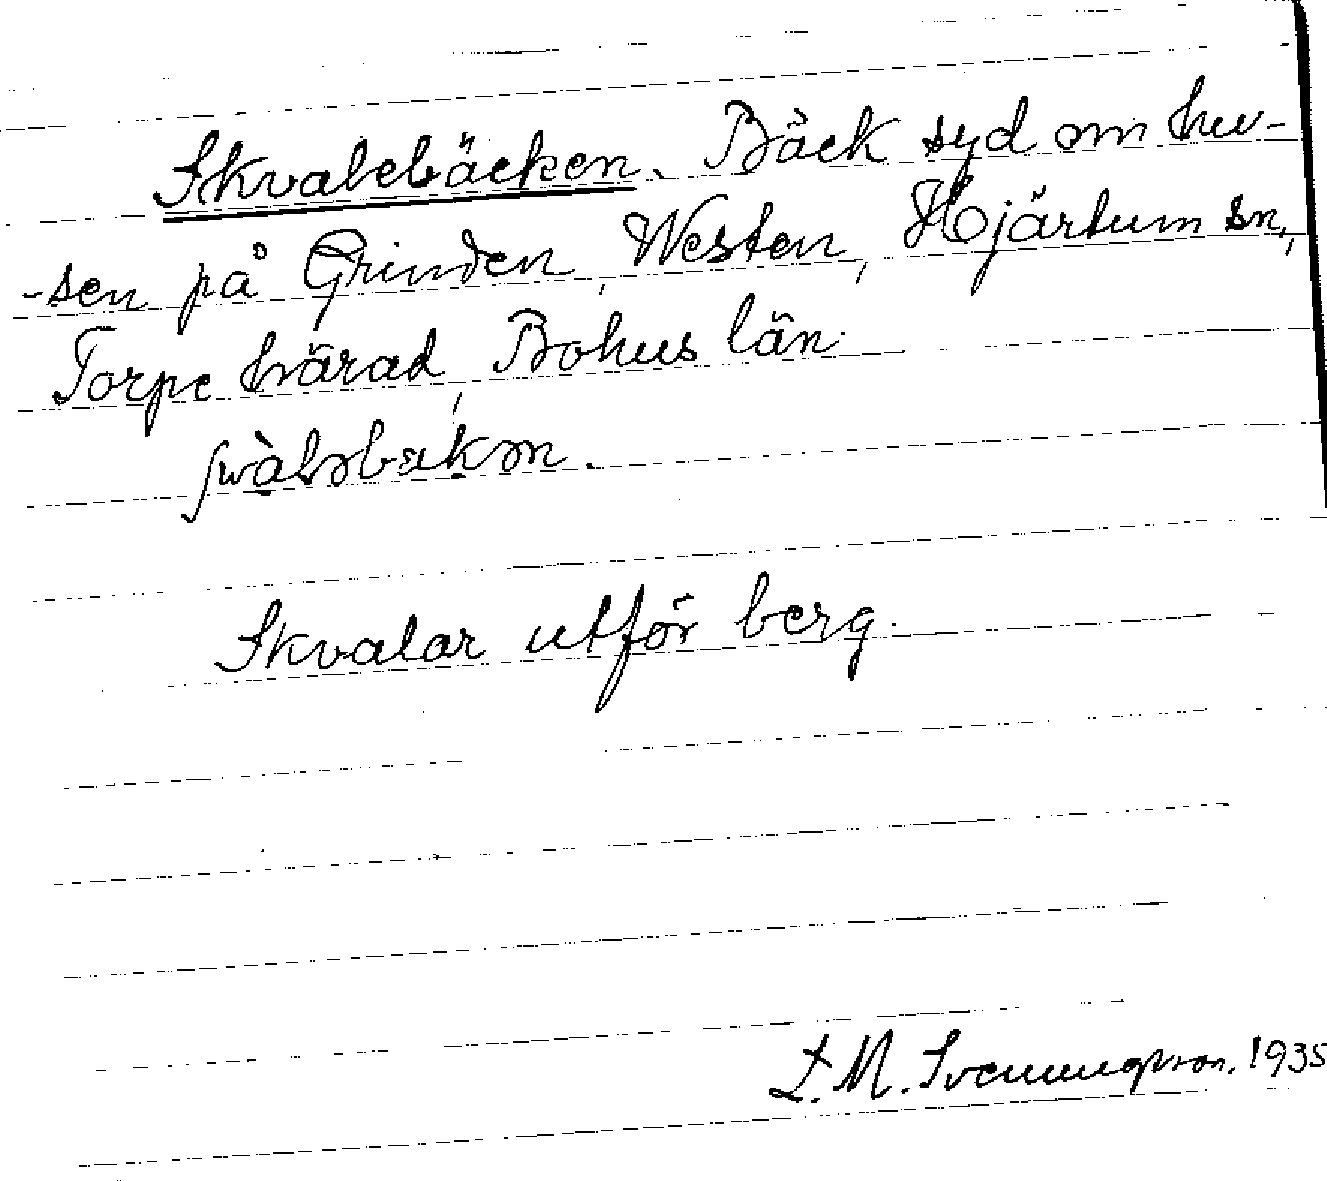 Skvalebäcken. Bäck syd om hu-
-sen på Grinden, Westen, Hjärtum sn,
Torpe härad, Bohus län.
Skvalar utför berg.
L. M. Svenungsson. 1935